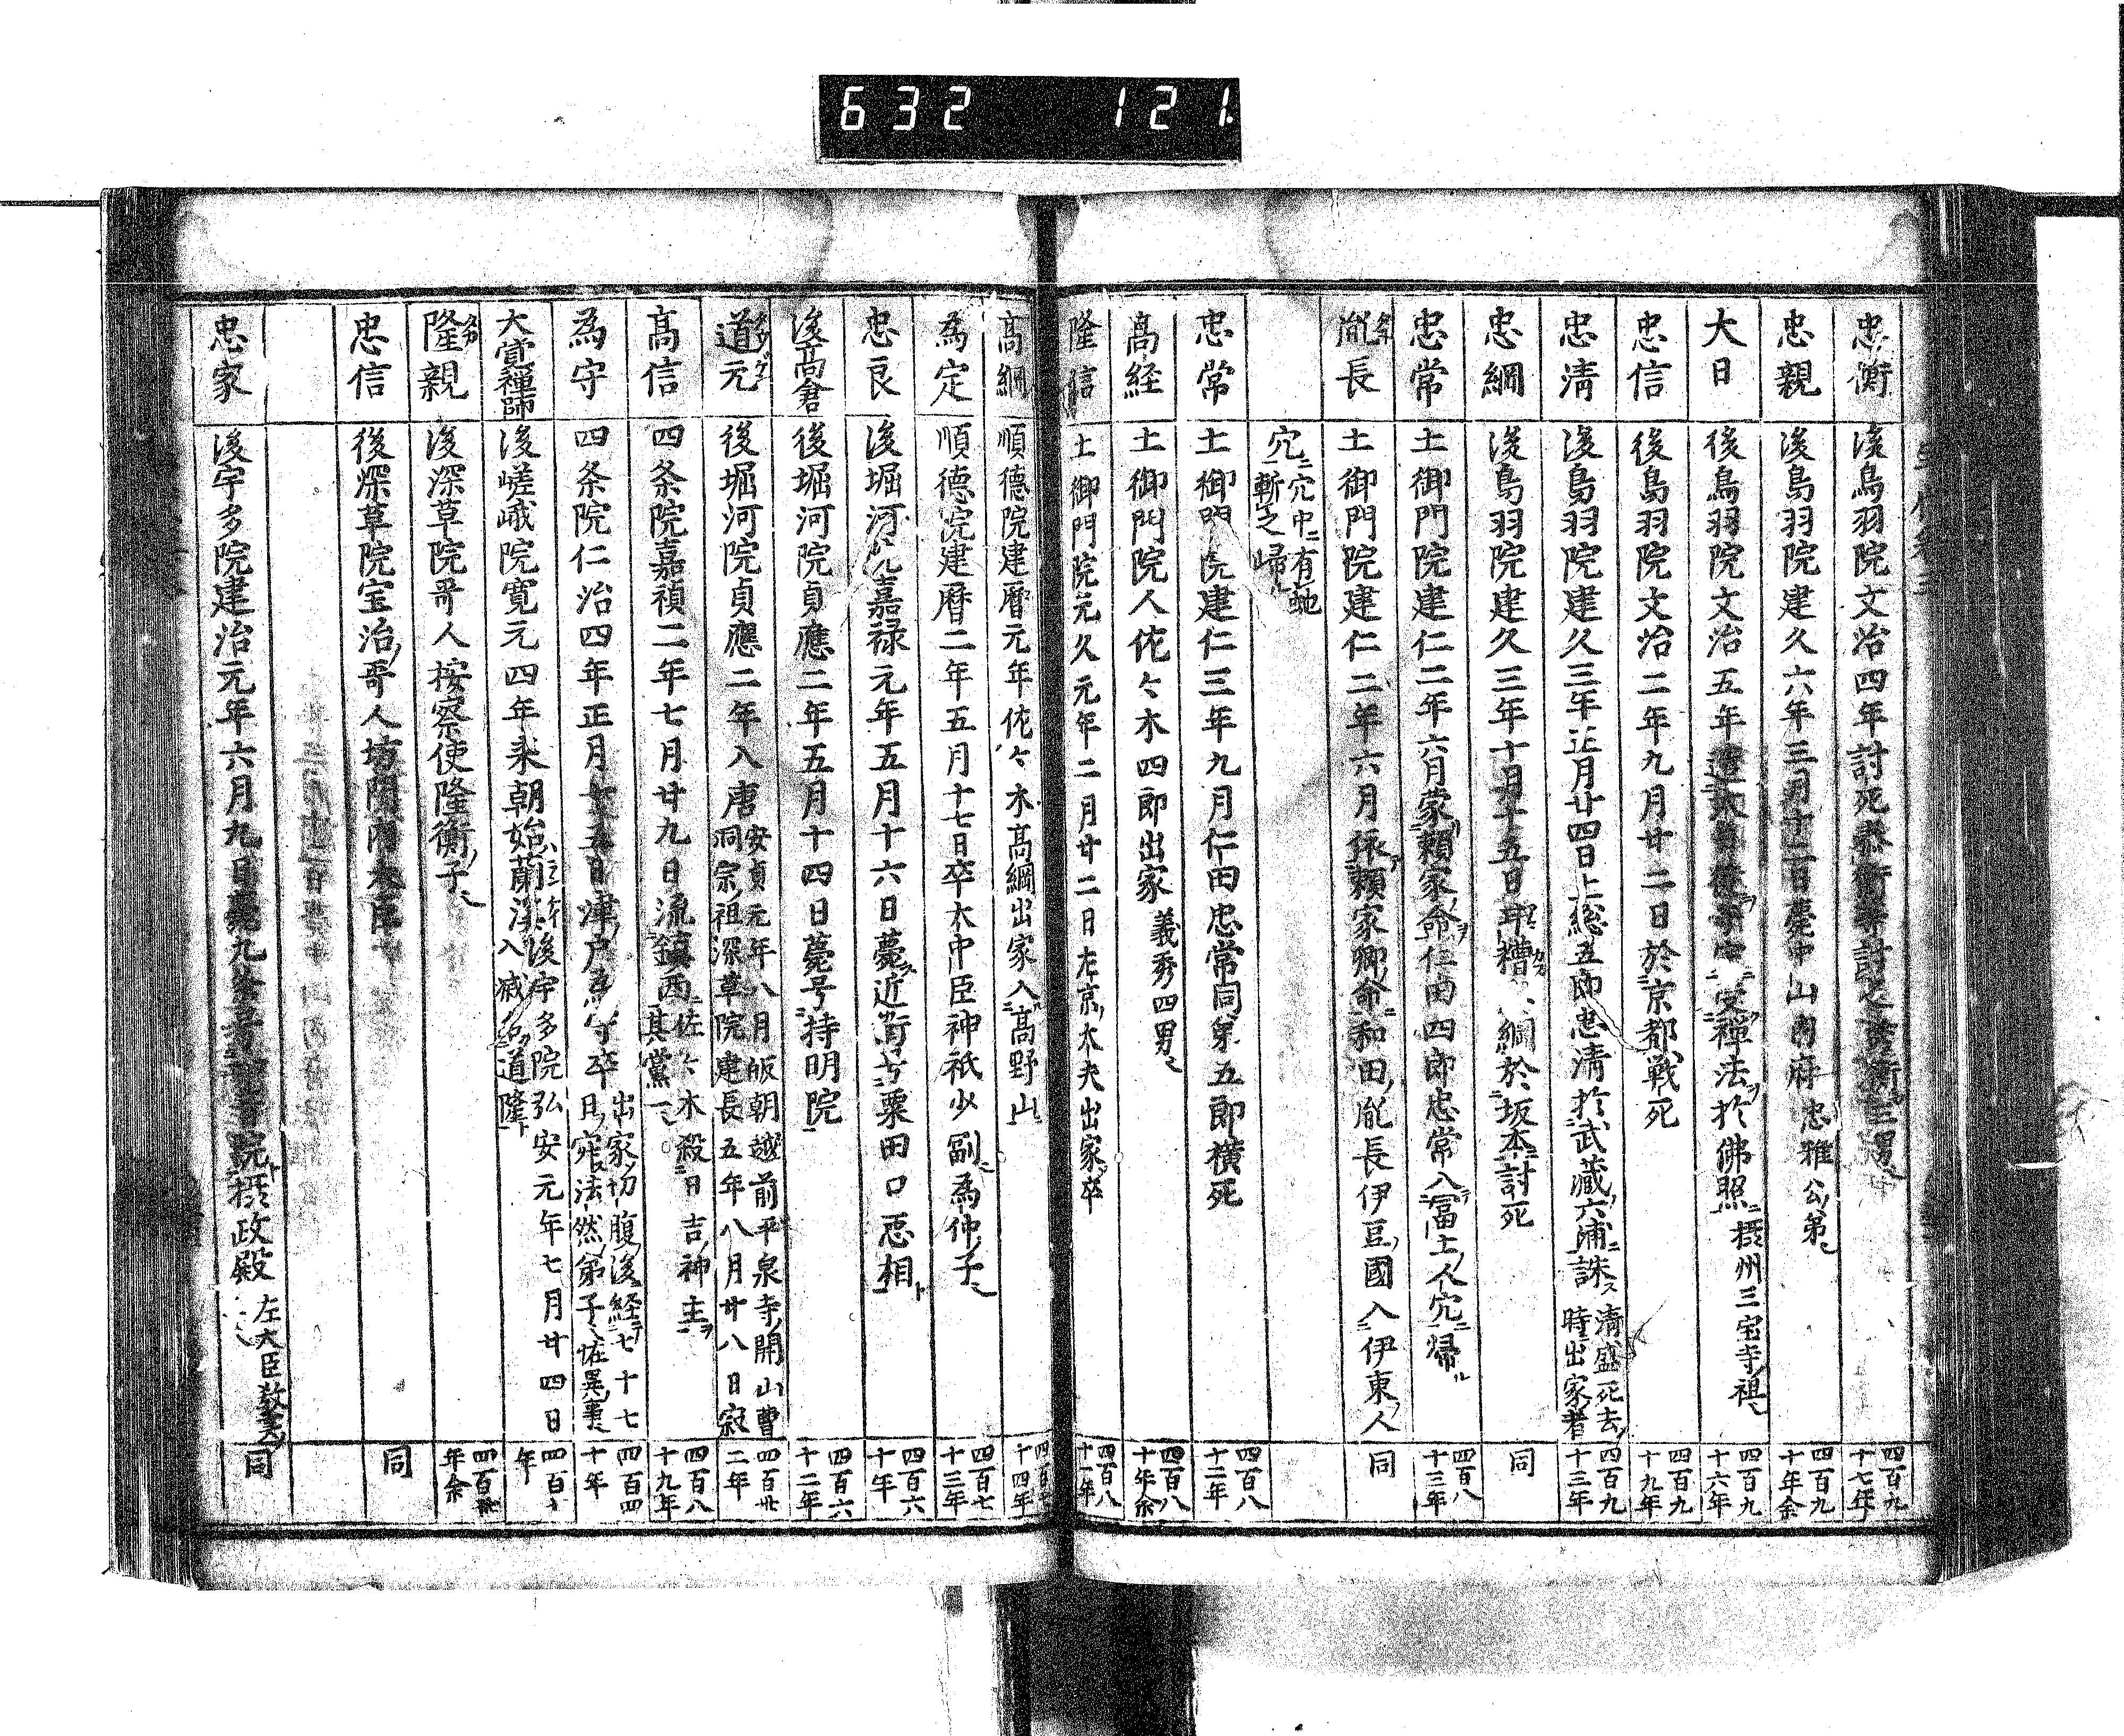 632 121
忠衡 後鳥羽院文治四年討死泰衡等討之
四百九十七年
忠親 後鳥羽院建久六年三月十二日薨中山内府 忠雅公ノ弟也
四百九十年余
大日 後鳥羽院文治五年 受禅法於佛照 摂州三宝寺ノ祖也
四百九十六年
忠信 後鳥羽院文治二年九月廿二日於京都戦死
四百九十九年
忠清 後鳥羽院建久三年正月廿四日上総五郎忠清於武蔵六浦誅ス 清盛死去ノ時出家ノ者
四百九十三年
忠綱 後鳥羽院建久三年十月十五日 糟 綱於坂本討死
同
忠常 土御門院建仁二年六月蒙頼家ノ命ヲ仁田四郎忠常入富士ノ人穴ニ帰ル
四百八十三年
胤長 土御門院建仁二年六月依頼家卿ノ命ニ和田ノ胤長伊豆ノ國ニ入伊東人
同
穴ニ穴中ニ有蛇斬之帰ル
忠常 土御門院建仁三年九月仁田忠常同弟五郎横死
四百八十二年
高経 土御門院人佐々木四郎出家 義秀四男也
四百八十年余
隆信 土御門院元久元年二月廿二日左京ノ大夫出家ノ卒
四百八十一年
高綱 順德院建暦元年佐々木高綱出家入高野山ニ
四百七十四年
為定 順德院建暦二年五月十七日卒大中臣神祇少副為仲ノ子也
四百七十三年
忠良 後堀河院嘉禄元年五月十六日薨近衛号粟田口忠相ト
四百六十年
後高倉 後堀河院貞應二年五月十四日薨号持明院
四百六十二年
道元 後堀河院貞應二年入唐 安貞元年八月皈朝越前平泉寺ノ開山曹洞宗ノ祖深草院建長五年八月廿八日寂
四百卅二年
高信 四条院嘉禎二年七月廿九日流鎮西ニ 佐々木殺日吉ノ神主ヲ其黨一
四百八十九年
為守 四条院仁治四年正月十五日津戸為守卒 出家ノ切腹ノ後経七十七日ノ 法然ノ弟子也 異事也
四百四十年
大覚禅師 後嵯峨院寛元四年来朝始 蘭溪 後宇多院弘安元年七月廿四日入滅名道隆ト
隆親 後深草院哥人按察使隆衡ノ子也
四百卅年余
忠信 後深草院宝治ノ哥人坊門内大臣
同
忠家 後宇多院建治元年六月九日薨九条号 院ト摂政殿 左大臣教実ノ
同